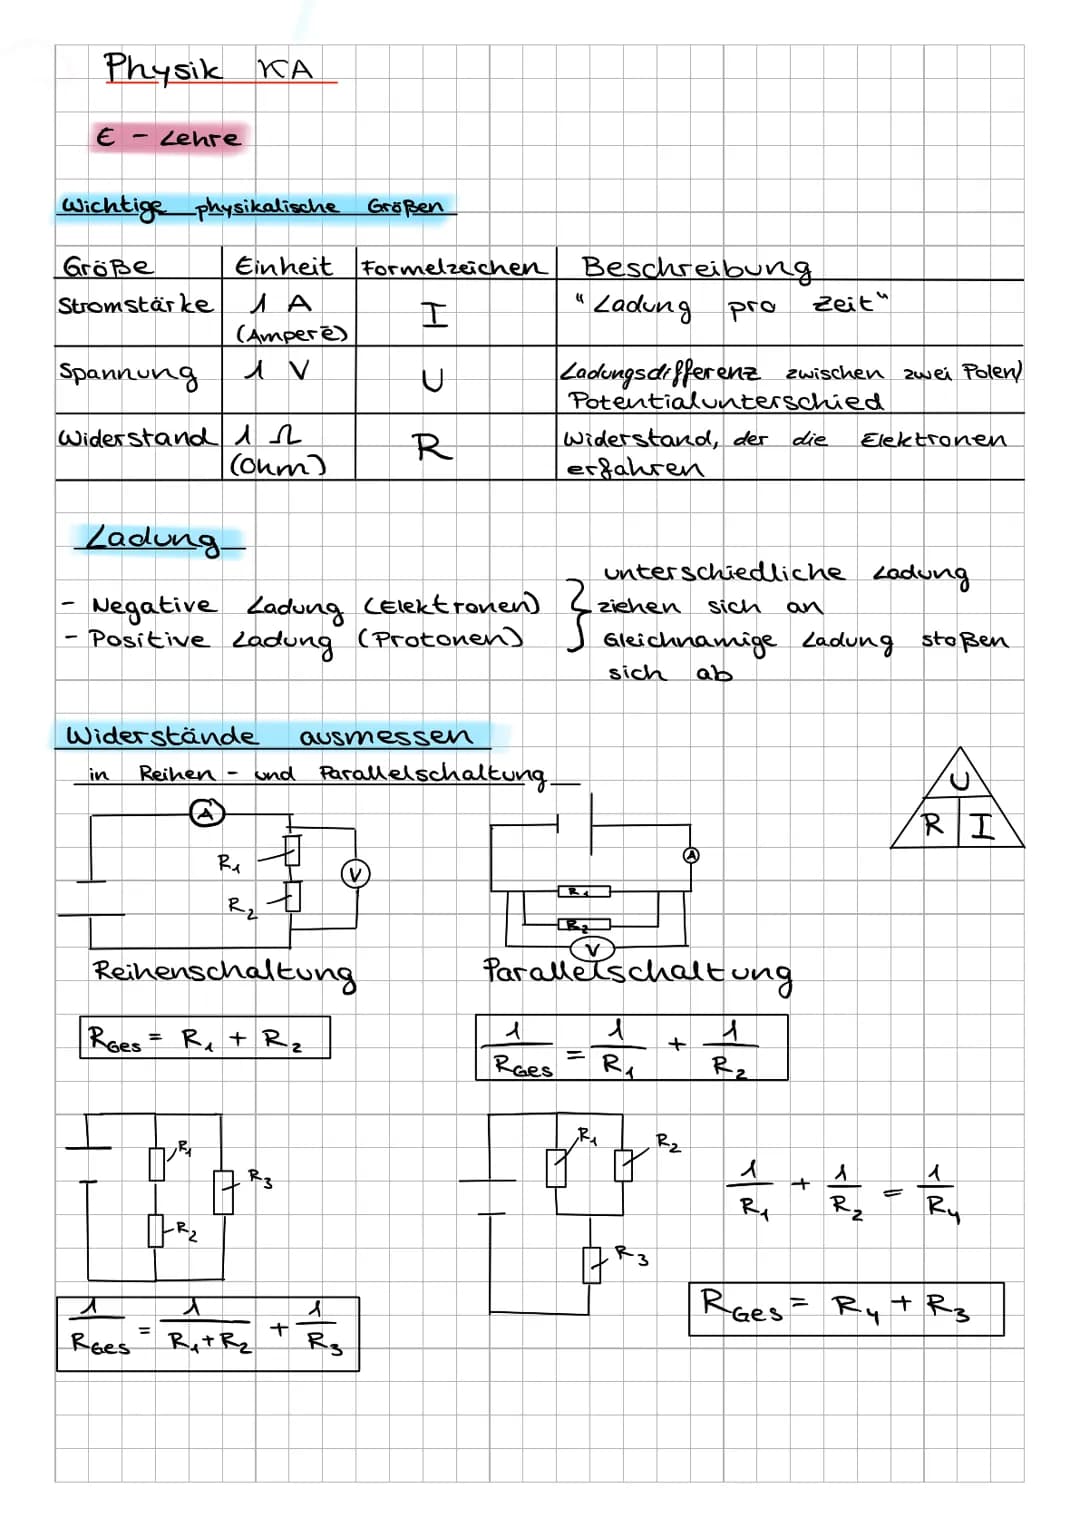 Physik KA
E - Lehre
Wichtige physikalische Größen
Größe Einheit Formelzeichen Beschreibung
Stromstärke 1 A (Amperē) I "Ladung pro Zeit"
Spannung 1 V U Ladungsdifferenz zwischen zwei Polen/
Potentialunterschied
Widerstand 1 Ω (Ohm) R Widerstand, der die Elektronen
erfahren
Ladung
- Negative Ladung (Elektronen)
- Positive Ladung (Protonen)
unterschiedliche Ladung
ziehen sich an
Gleichnamige Ladung stoßen
sich ab
Widerstände ausmessen
in Reihen - und Parallelschaltung
U
R I
A
R₁
R₂
V
A
R₁
R₂
V
Reihenschaltung
Parallelschaltung
RGes = R₁ + R₂
1/RGes = 1/R₁ + 1/R₂
R₁
R₂
R₃
R₁
R₂
R₃
1/R₁ + 1/R₂ = 1/R₄
1/RGes = 1/R₁+R₂ + 1/R₃
RGes = R₄ + R₃